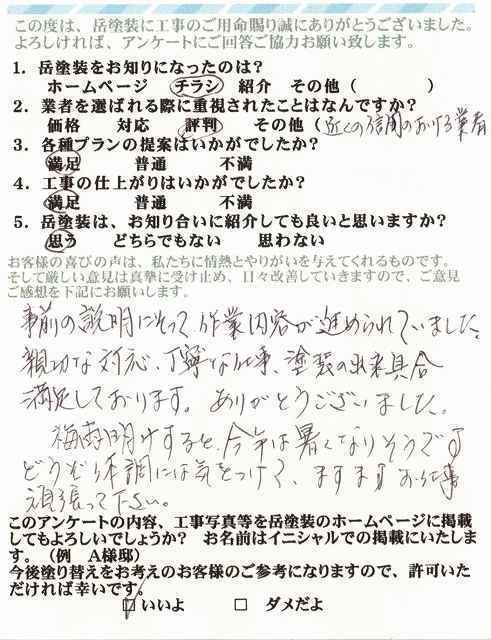 この度は、岳塗装に工事のご用命賜り誠にありがとうございました。
よろしければ、アンケートにご回答ご協力お願い致します。
1．岳塗装をお知りになったのは？
ホームページ　チラシ　紹介　その他（　　　　　）
2．業者を選ばれる際に重視されたことはなんですか？
価格　対応　評判　その他（近くの信用のおける業者
3．各種プランの提案はいかがでしたか？
満足　普通　不満
4．工事の仕上がりはいかがでしたか？
満足　普通　不満
5．岳塗装は、お知り合いに紹介しても良いと思いますか？
思う　どちらでもない　思わない
お客様の喜びの声は、私たちに情熱とやりがいを与えてくれるものです。
そして厳しい意見は真摯に受け止め、日々改善していきますので、ご意見
ご感想を下記にお願いします。
事前の説明にそって作業内容が進められていました。
親切な対応、丁寧な仕事、塗装の出来具合
満足しております。ありがとうございました。
梅雨明けすると、今年は暑くなりそうです
どうぞ体調には気をつけて、ますますお仕事
頑張って下さい。
このアンケートの内容、工事写真等を岳塗装のホームページに掲載
してもよろしいでしょうか？　お名前はイニシャルでの掲載にいたしま
す。（例　A様邸）
今後塗り替えをお考えのお客様のご参考になりますので、許可いた
だければ幸いです。
☑ いいよ　□ ダメだよ